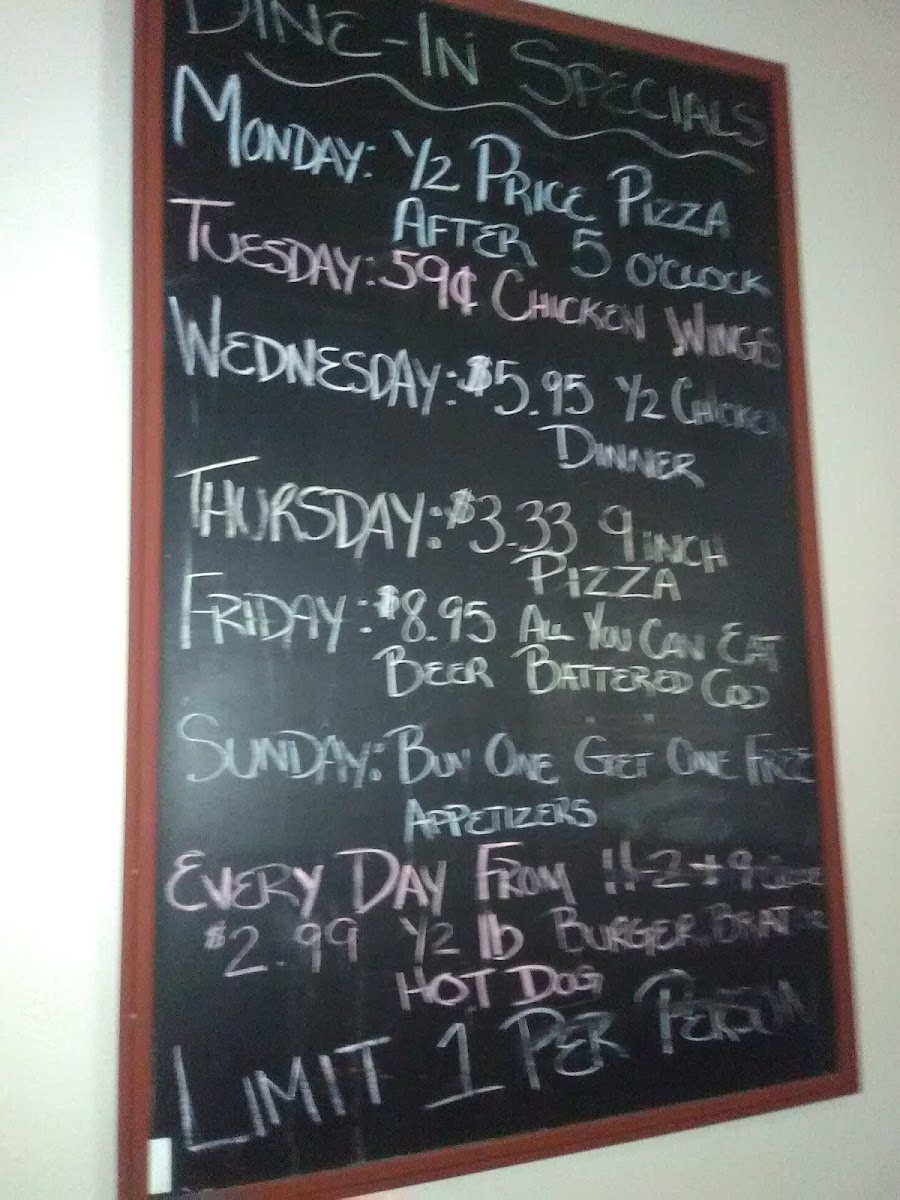 DINE-IN SPECIALS
MONDAY: 1/2 PRICE PIZZA
AFTER 5 O'CLOCK
TUESDAY: 59¢ CHICKEN WINGS
WEDNESDAY: $5.95 1/2 CHICKEN
DINNER
THURSDAY: $3.33 9 INCH
PIZZA
FRIDAY: $8.95 ALL YOU CAN EAT
BEER BATTERED COD
SUNDAY: BUY ONE GET ONE FREE
APPETIZERS
EVERY DAY FROM 11-2 + 9 CLOSE
$2.99 1/2 lb BURGER, BRAT
HOT DOG
LIMIT 1 PER PERSON